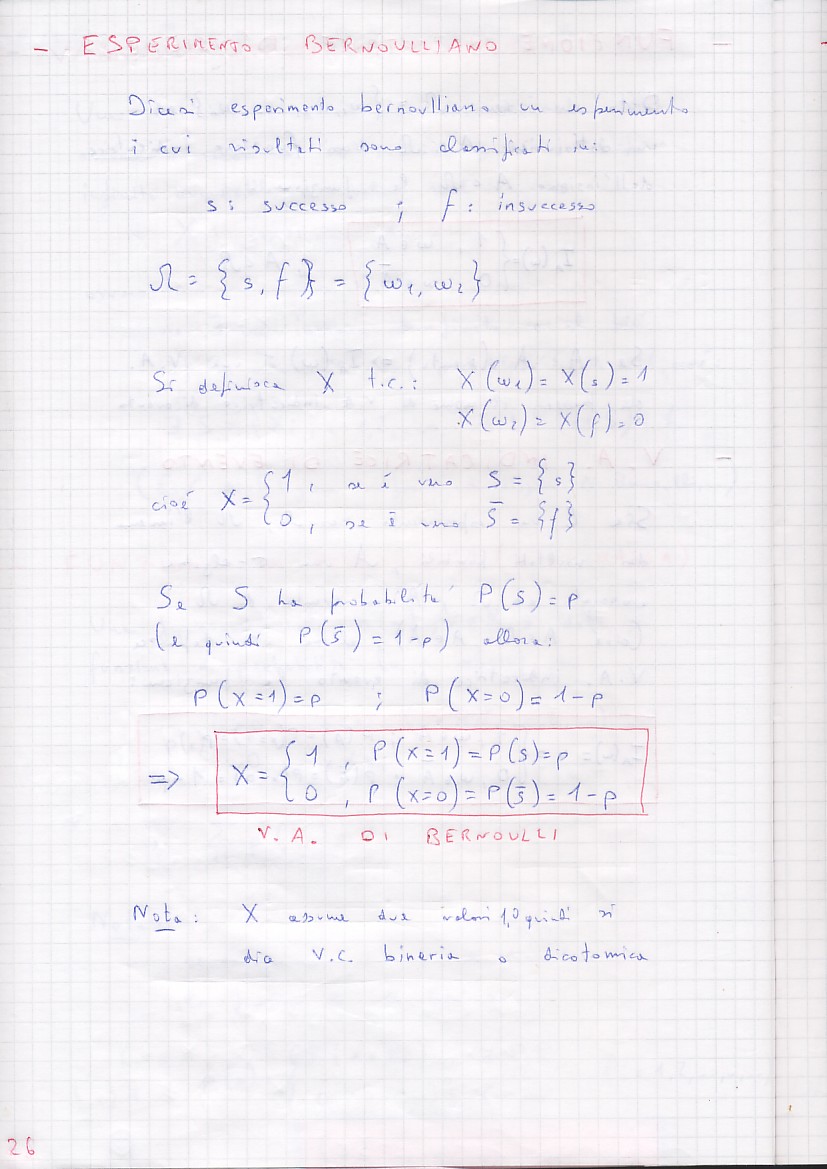 - ESPERIMENTO BERNOULLIANO -
Dicesi esperimento bernoulliano un esperimento
i cui risultati sono classificati in:
s: successo ; f: insuccesso
Ω = {s, f} = {ω1, ω2}
Si definisca X t.c.: X(ω1) = X(s) = 1
X(ω2) = X(f) = 0
cioé X = { 1, se è vero S = {s}
0, se è vero S̄ = {f}
Se S ha probabilità P(S) = p
(e quindi P(S̄) = 1-p) allora:
P(X=1) = p ; P(X=0) = 1-p
=> X = { 1, P(X=1) = P(S) = p
0, P(X=0) = P(S̄) = 1-p
V.A. DI BERNOULLI
Nota: X assume due valori 1,0 quindi si
dia V.C. bineria o dicotomica
26